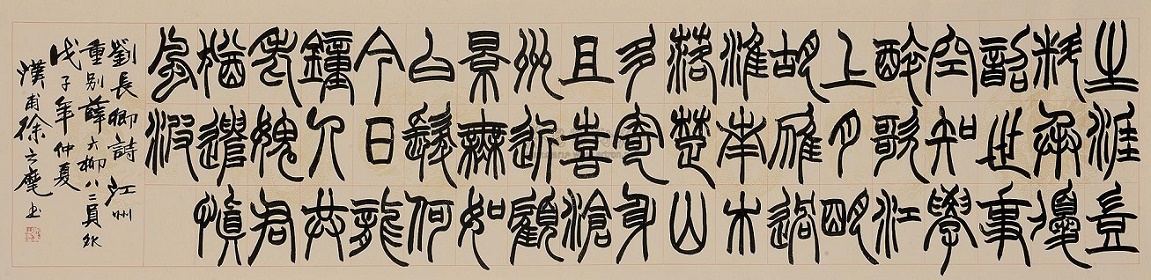 生涯豈
料承優
詔世事
空知學
醉歌江
上月明
胡雁過
淮南木
落楚山
多寄身
且喜滄
州近顧
景無如
白髮何
今日龍
鐘人共
老愧君
猶遣慎
風波
劉長卿詩 江州
重別薛六柳八二員外
戊子年仲夏
漢甫徐書